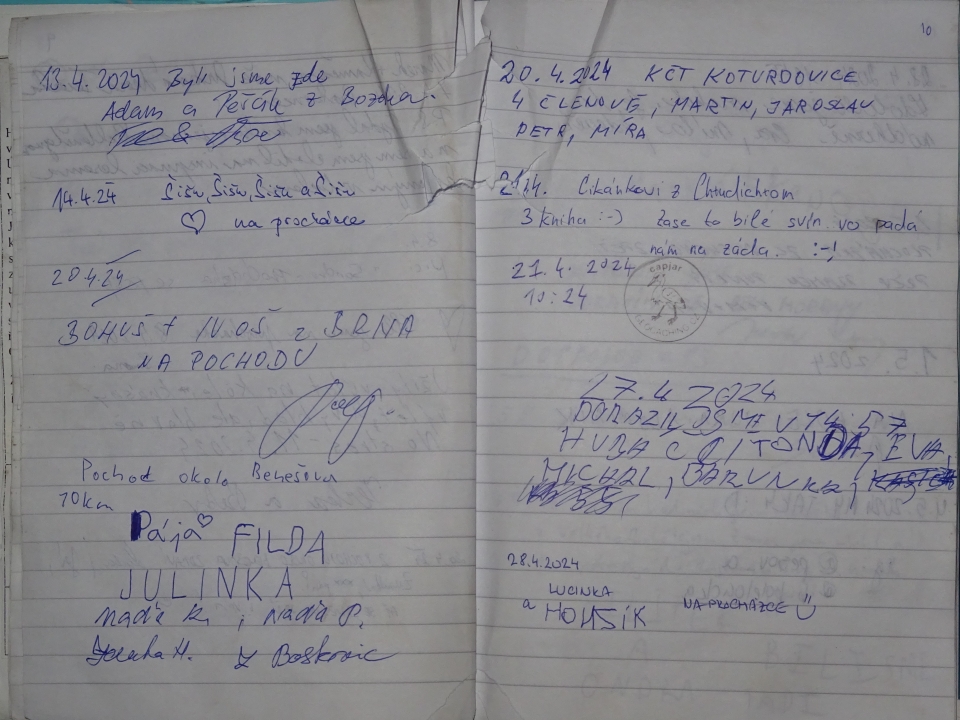 13.4.2024 Byli jsme zde
Adam a Peťák z Bozka.
14.4.24 Šišu, Šišu, Šišu a Šišu
na procházce
20.4.24
BOHUŠ + IVOŠ z BRNA
NA POCHODU
Pochod okolo Benešova
10km
Pája FILDA
JULINKA
Naďa K. i Naďa P.
H. z Boskovic
10
20.4.2024 KČT KOTURDOVICE
4 ČLENOVÉ, MARTIN, JAROSLAV
PETR, MÍRA
21.4. Cikánkovi z Chrudichrom
3 kniha :-) Zase to bílé svin. vo padá
nám na záda. :-!
21.4. 2024
10:24
capjar
GEOCACHING
27.4 2024
DORAZILI JSME V 14:57
TONDA, EVA,
MICHAL, BARUNKA,
28.4.2024
LUCINKA
a HONSÍK NA PROCHÁZCE